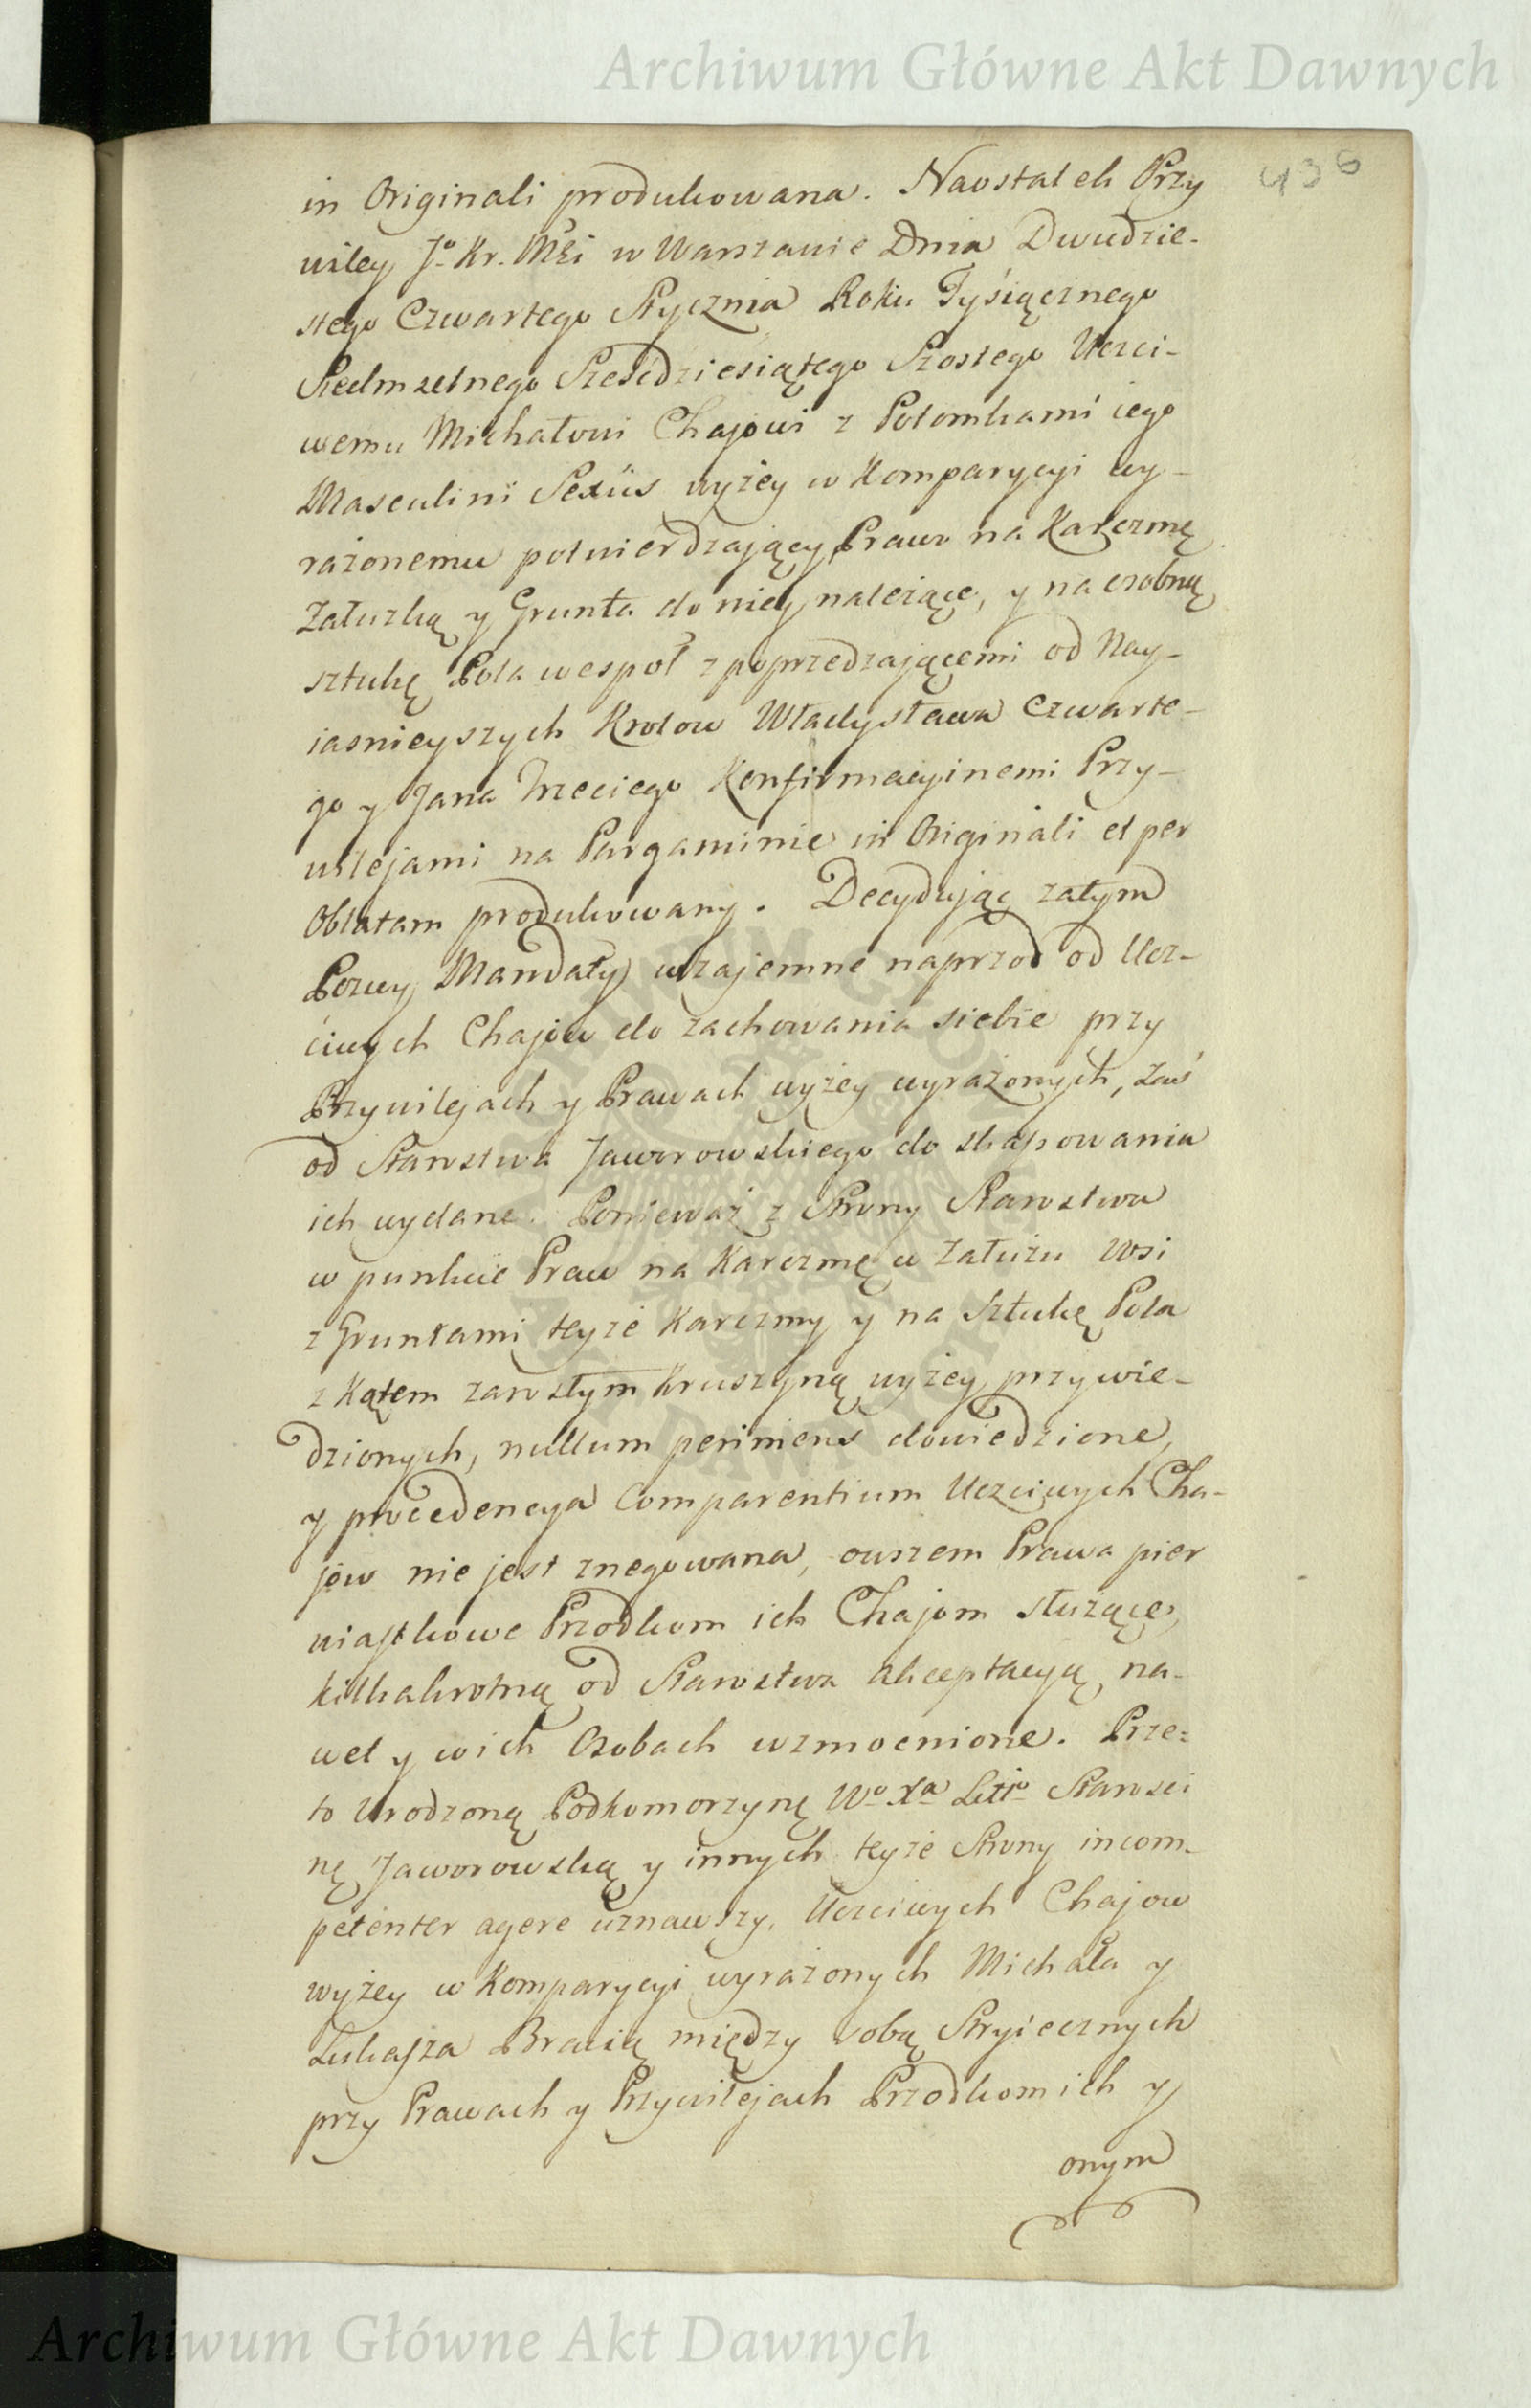 Archiwum Główne Akt Dawnych
436
in Originali produkowana. Naostatek Przy
wiley Jº Kr. Mći w Warszawie Dnia Dwudzie-
stego Czwartego Stycznia Roku Tysiącznego
Siedmsetnego Sześćdziesiątego Szostego Uczci-
wemu Michałowi Chajowi z Potomkami iego
Masculini Sexûs wyżey w Komparycyi wy-
rażonemu potwierdzający Prawo na Karczmę
Załuzką y Grunta do niey należące, y na osobną
sztukę Pola wespoł z poprzedzającemi od Nay-
iasnieyszych Krolow Władysława Czwarte-
go y Jana Trzeciego Konfirmacyinemi Przy-
wilejami na Pargaminie in Originali et per
Oblatam produkowany. Decydując zatym
Pozwy Mandaty wzajemne naprzod od Ucz-
ciwych Chajow do zachowania siebie przy
Przywilejach y Prawach wyżey wyrażonych, zaś
od Starostwa Jaworowskiego do skassowania
ich wydane. Ponieważ z Strony Starostwa
w punkcie Praw na Karczmę w Załużu Wsi
z Gruntami teyże Karczmy y na Sztukę Pola
z Kątem zarosłym Kruszyną wyżey przywie-
dzionych, nullum perimens dowiedzione,
y procedencya Comparentium Uczciwych Cha-
jow nie jest znegowana, owszem Prawa pier
wiastkowe Przodkom ich Chajom służące,
kilkakrotną od Starostwa akceptacyą, na-
wet y w ich Osobach wzmocnione. Prze-
to Urodzoną Podkomorzynę Wº Xª Littº Starosci
nę Jaworowską y innych teyże Strony incom-
petenter agere uznawszy, Uczciwych Chajow
wyżey w Komparycyi wyrażonych Michała y
Łukasza Bracią między sobą Stryiecznych
przy Prawach y Przywilejach Przodkom ich y
onym
Archiwum Główne Akt Dawnych